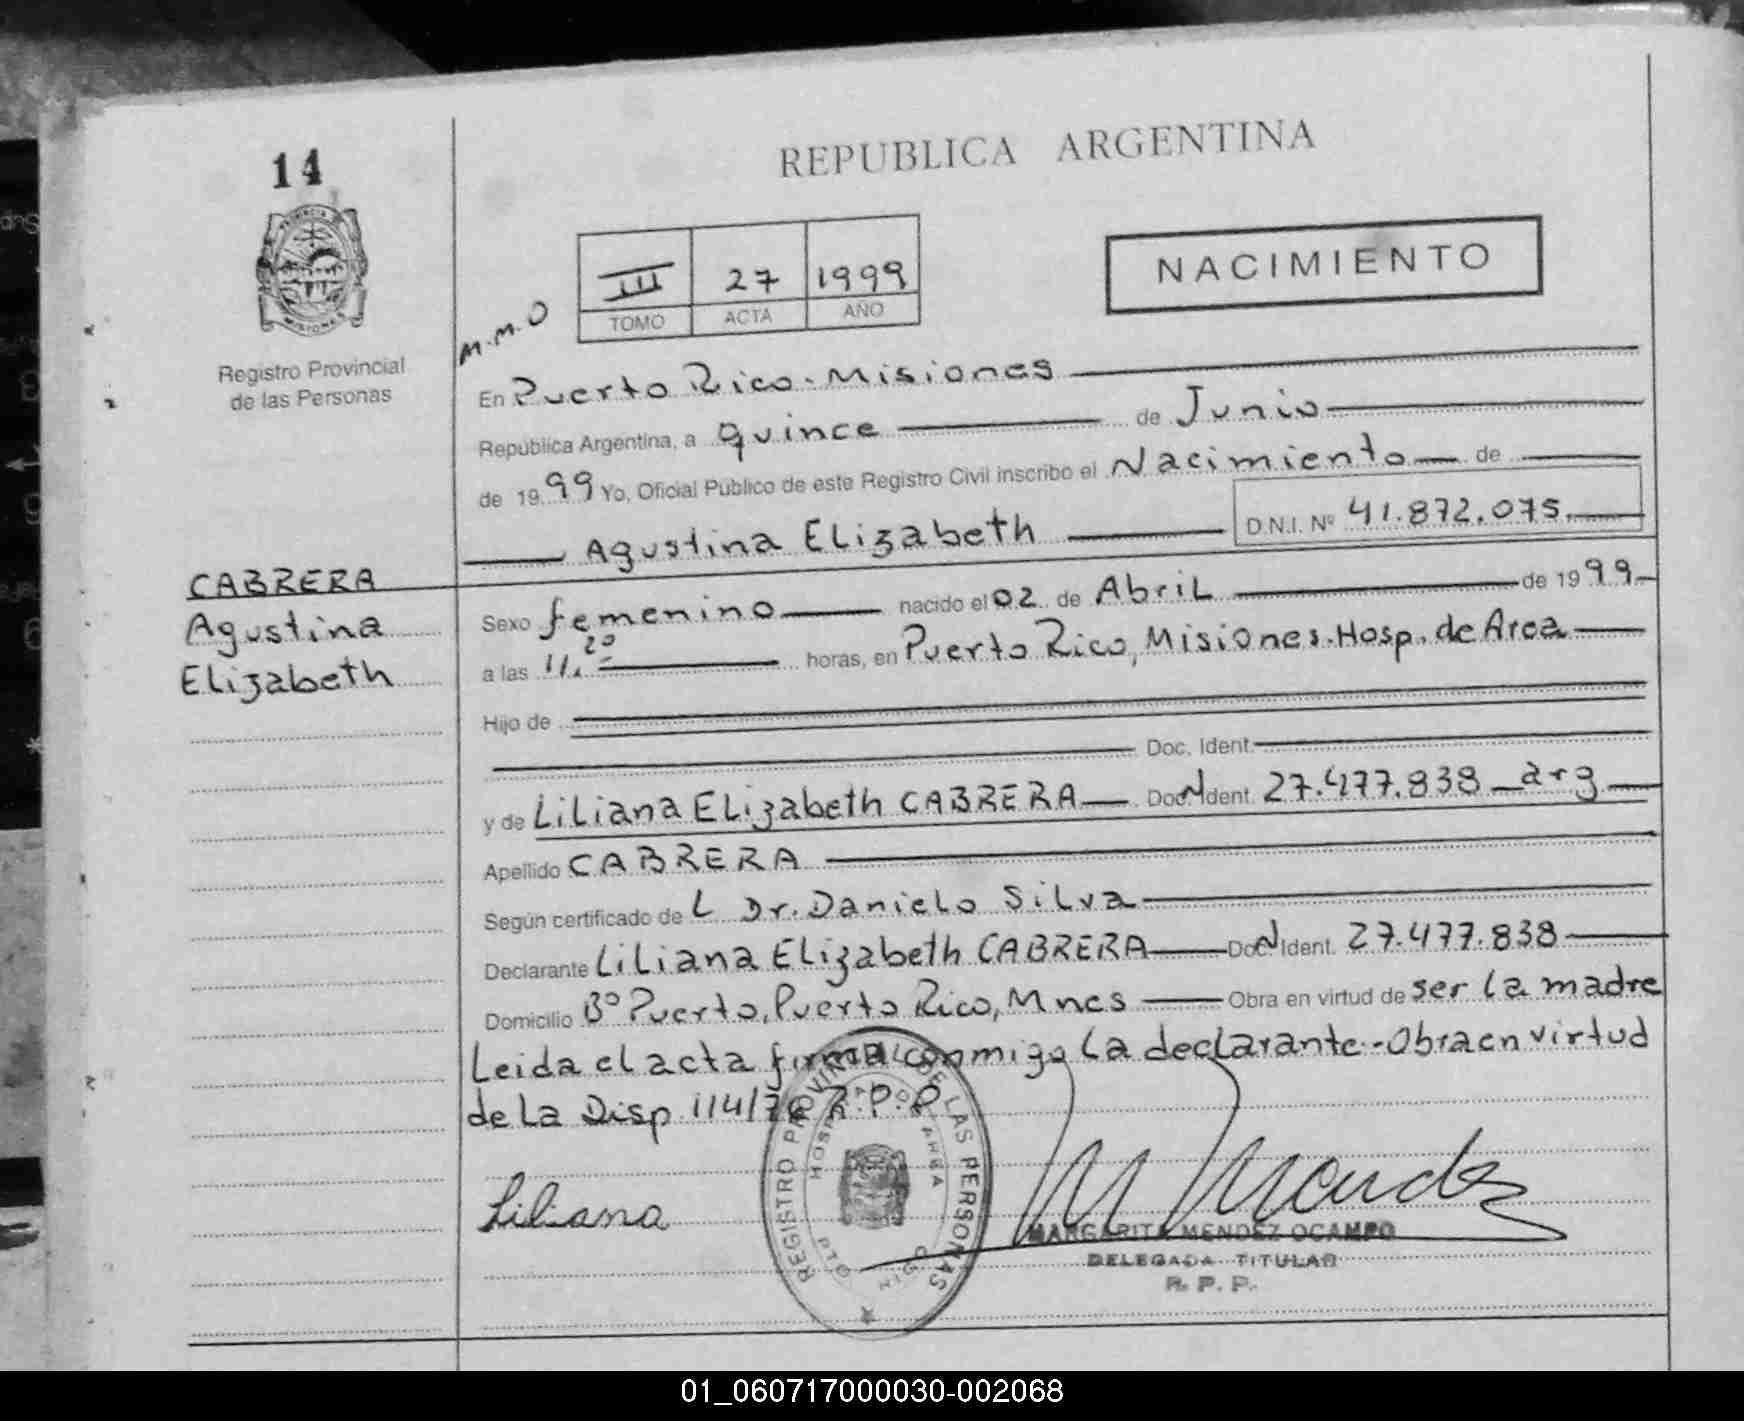 14
REPUBLICA ARGENTINA
PROVINCIA
MISIONES
Registro Provincial
de las Personas
III 27 1999
TOMO ACTA AÑO
NACIMIENTO
M.M.O
En Puerto Rico. Misiones
República Argentina, a quince de Junio
de 19 99 Yo, Oficial Público de este Registro Civil inscribo el Nacimiento de
Agustina Elizabeth D.N.I. Nº 41.872.075.
CABRERA
Agustina
Elizabeth
Sexo femenino nacido el 02 de Abril de 19 99
a las 11.20 horas, en Puerto Rico, Misiones. Hosp. de Area
Hijo de
Doc. Ident.
y de Liliana Elizabeth CABRERA Doc. N Ident. 27.477.838 arg
Apellido CABRERA
Según certificado de L Dr. Danielo Silva
Declarante Liliana Elizabeth CABRERA Doc. N Ident. 27.477.838
Domicilio Bº Puerto, Puerto Rico, Mnes Obra en virtud de ser la madre
Leida el acta firma conmigo la declarante.-Obra en virtud
de La Disp 114/76 R.P.P
REGISTRO PROVINCIAL DE LAS PERSONAS
Liliana
M Mendez
MARGARITA MENDEZ OCAMPO
DELEGADA TITULAR
R. P. P.
01_060717000030-002068